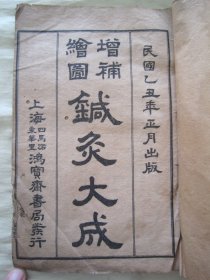 民國乙丑年正月出版
增補
繪圖
鍼灸大成
上海四馬路東華里鴻寶齋書局發行